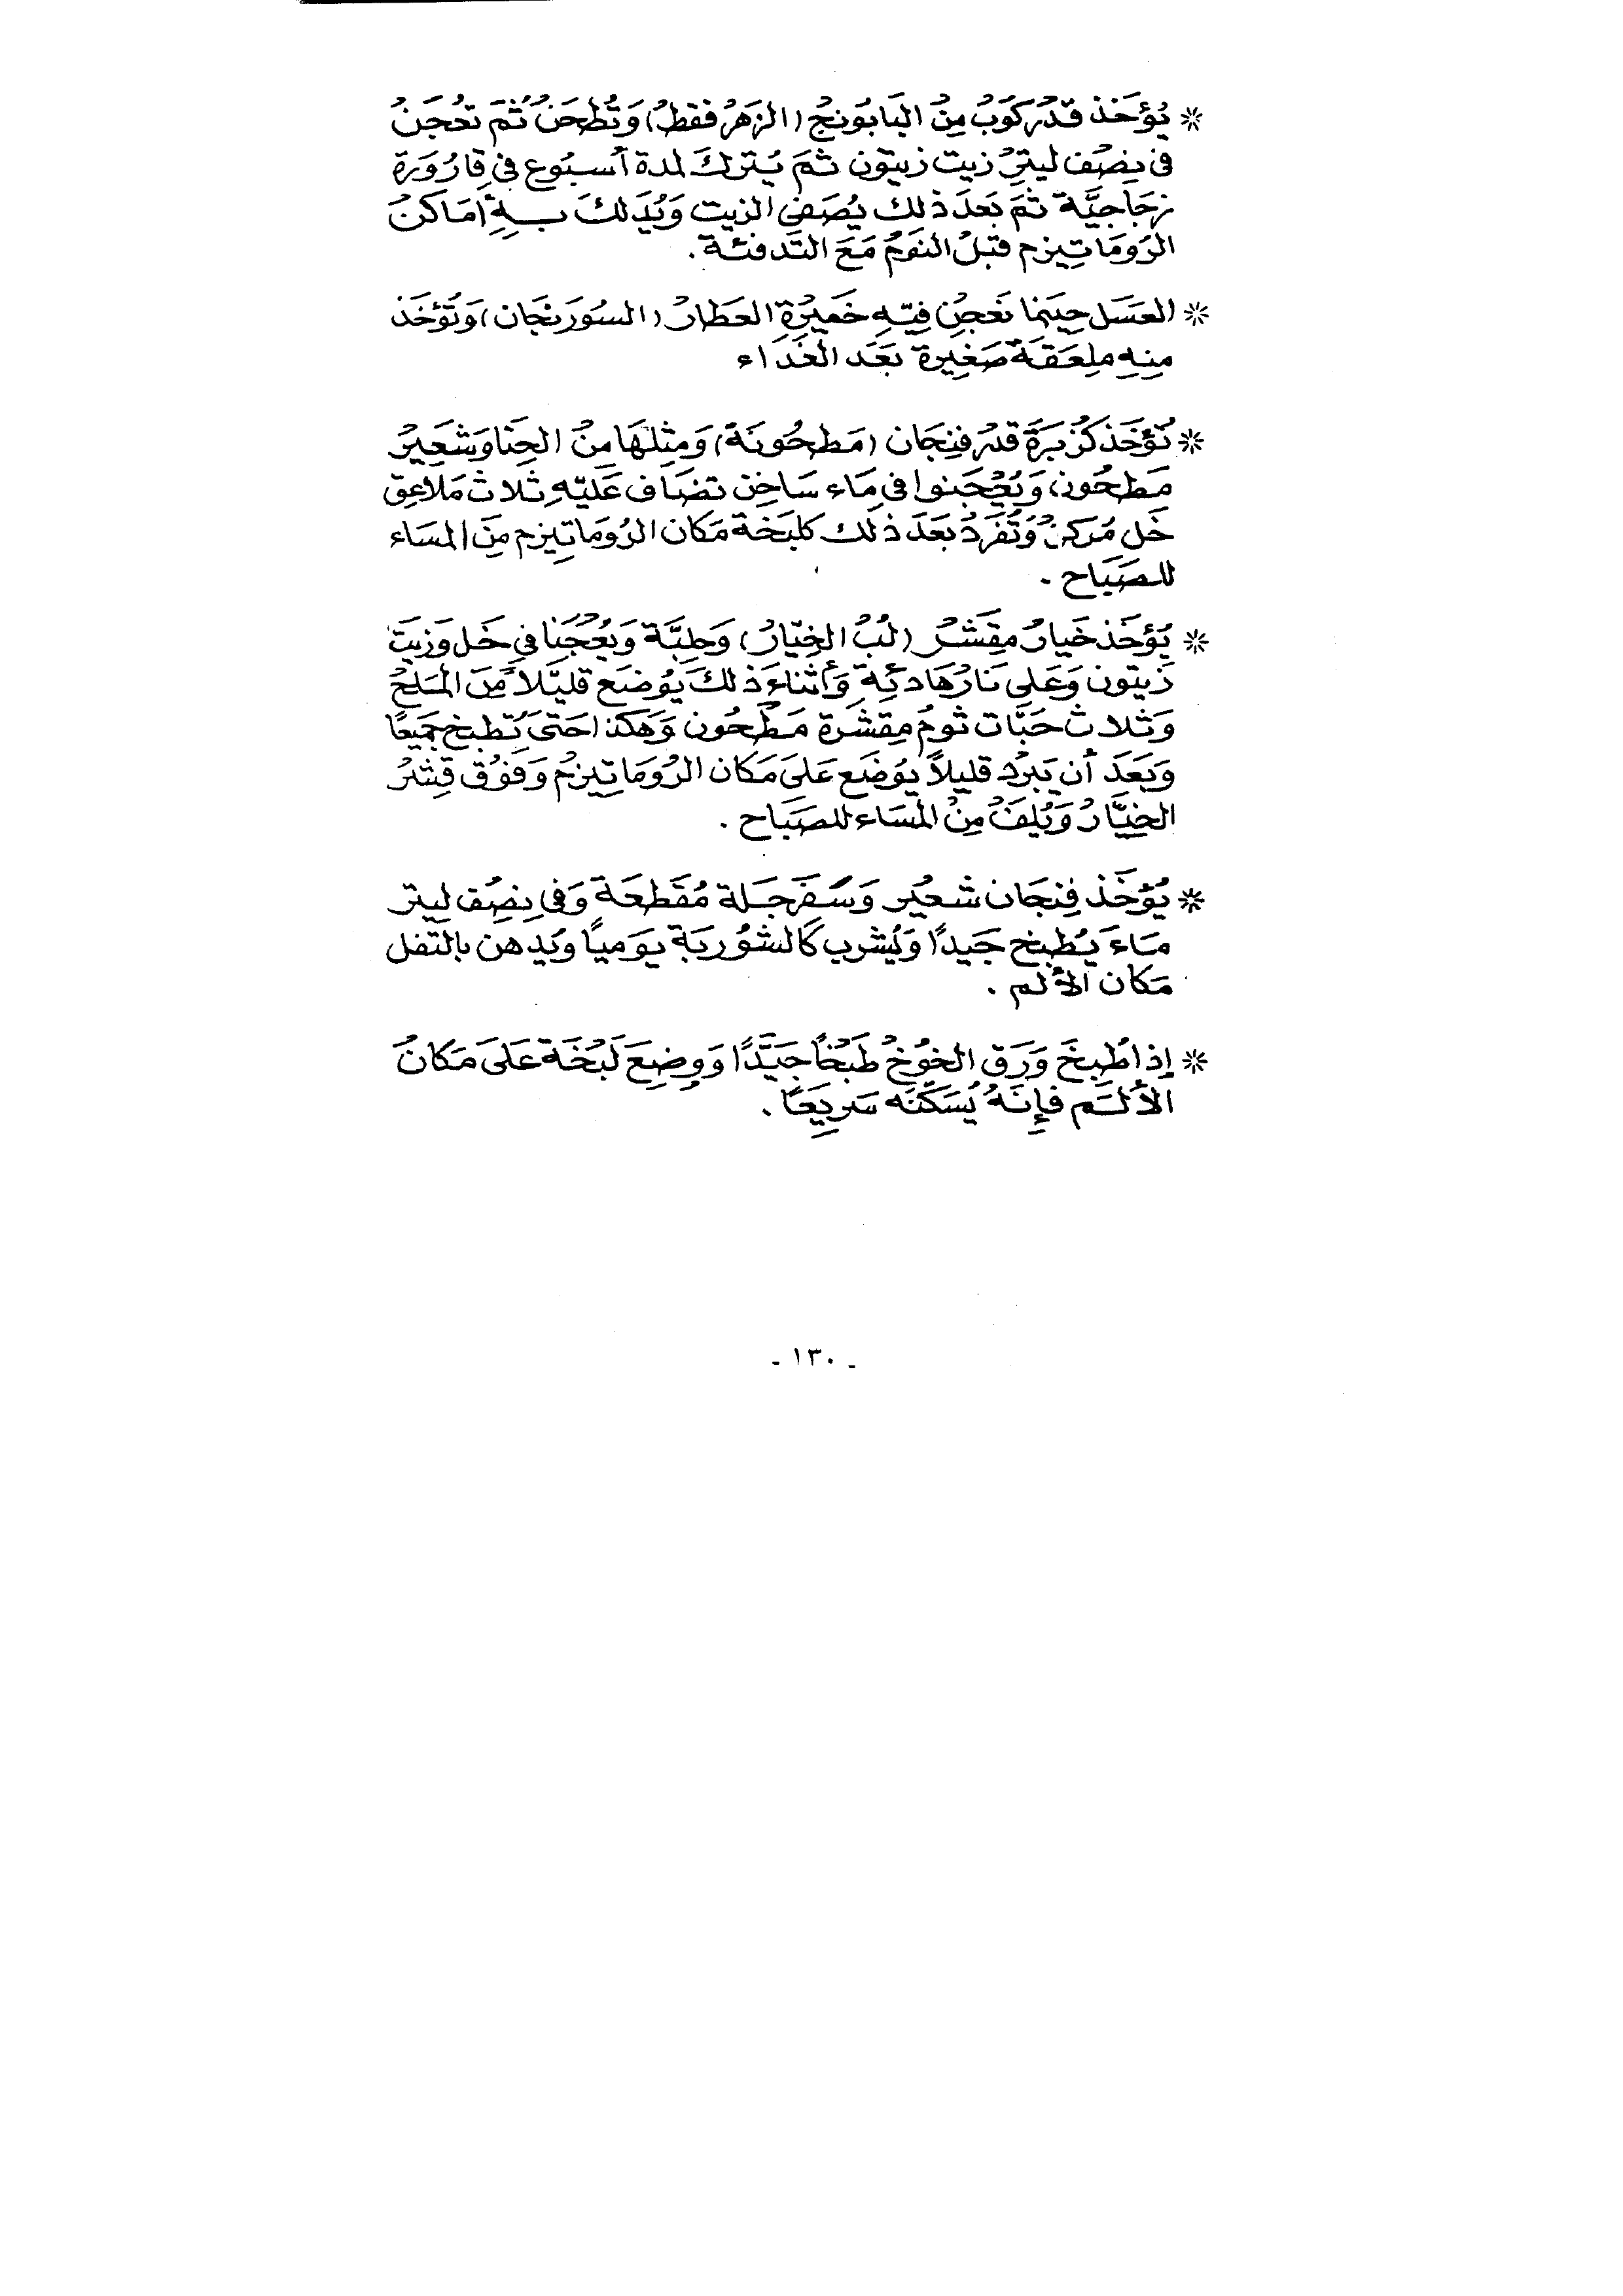 * يُؤخَذ قَدْر كَوبْ مِنْ البَابُونجْ (الزهَرْ فقطْ) وَتُطحَنْ ثمَ تعْجَنْ
في نِصْف ليترْ زيت زيتون ثمَ يُتركَ لمدة أسبُوع في قارُوَرة
زجَاجيَّة ثمَ بَعدَ ذلك يُصَفى الزيت وَيُدَلكَ بِهِ أمَاكنْ
الرُومَاتِيزم قبْل النَومْ مَعَ التَدفئة.
* العَسَل حِينَما نعْجِنْ فِيّهِ خَميْرَة العَطارْ (السُورَنجَان) وَتُؤْخَذ
مِنهِ مِلعَقَة صَغِيرة بَعَد الغَدَاء
* تُؤخَذ كُزبَرَة قدْر فِنجَان (مَطحُونَة) وَمِثِلهَا مِنْ الحِنا وَشعَيِرْ
مَطحُون، وَيُعْجَنوا في مَاء سَاخِن تضَاف عَليّهِ ثلاث مَلاعِق
خَل مُرَكزْ وَتُفرَدْ بَعَدَ ذلك كلبَخة مَكان الرُومَاتِيزم مِنَ المسَاء
للصَبَاح .
* يُؤخَذ خَيارْ مقِشَرْ (لُبْ الخِيّارْ) وَحِلبَّة وَيُعْجَنا في خَل وَزيَت
زَيتون وَعَلى نَارْ هَادئِة وَأثناءَ ذلكَ يُوضَع قليَلاً مِنَ الملَحْ
وَثلاث حَبَّات ثومْ مِقشرَة مَطحُون وَهَكذا حَتىَ تُطبخ جَميَعًا
وَبَعَدَ أن يَبرُد قليلاً يوَضَع عَلىَ مَكان الرُومَاتِيزمْ وَفوْق قِشرْ
الخِيَّارْ وَيُلفْ مِنْ المسَاء للصَبَاح .
* يُؤخَذ فِنجَان شعيُر وَسَفَرجَلة مُقَطعَة وَفي نِصْف ليتر
مَاءَ يُطبخ جَيدًا وَيُشرب كَالشوُربَة يوَميًا ويُدهن بالتفل
مَكان الألم .
* إذا طُبِخَ وَرَق الخوْخْ طَبْخًا جَيَّدًا وَوضِعَ لَبْخَة عَلىَ مَكانْ
الألَم فإِنَهُ يُسَكَّنَه سَرِيَعًا .
- ١٣٠ -